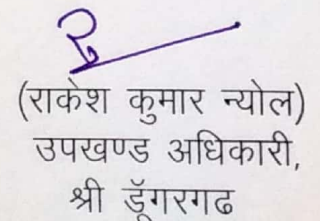 (राकेश कुमार न्योल)
उपखण्ड अधिकारी,
श्री डॅूगरगढ